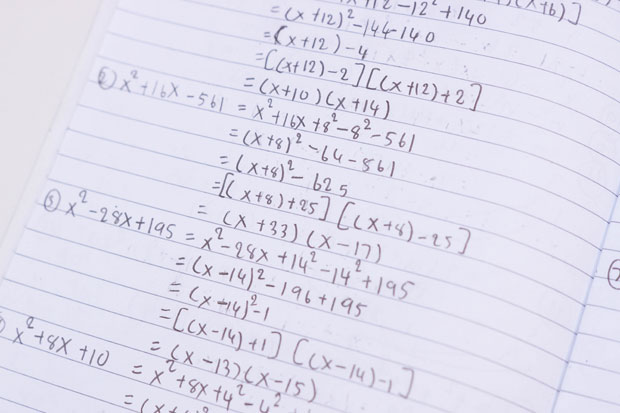 +12 - 12² + 140
(x+6)]
= (x+12)² - 144 - 140
= (x+12) - 4
= [(x+12) - 2] [(x+12) + 2]
= (x+10) (x+14)
⑥ x² + 16x - 561 = x² + 16x + 8² - 8² - 561
= (x+8)² - 64 - 561
= (x+8)² - 625
= [(x+8) + 25] [(x+8) - 25]
= (x+33) (x-17)
⑤ x² - 28x + 195 = x² - 28x + 14² - 14² + 195
= (x-14)² - 196 + 195
= (x-14)² - 1
= [(x-14) + 1] [(x-14) - 1]
= (x-13) (x-15)
x² + 8x + 10 = x² + 8x + 4² - 4²